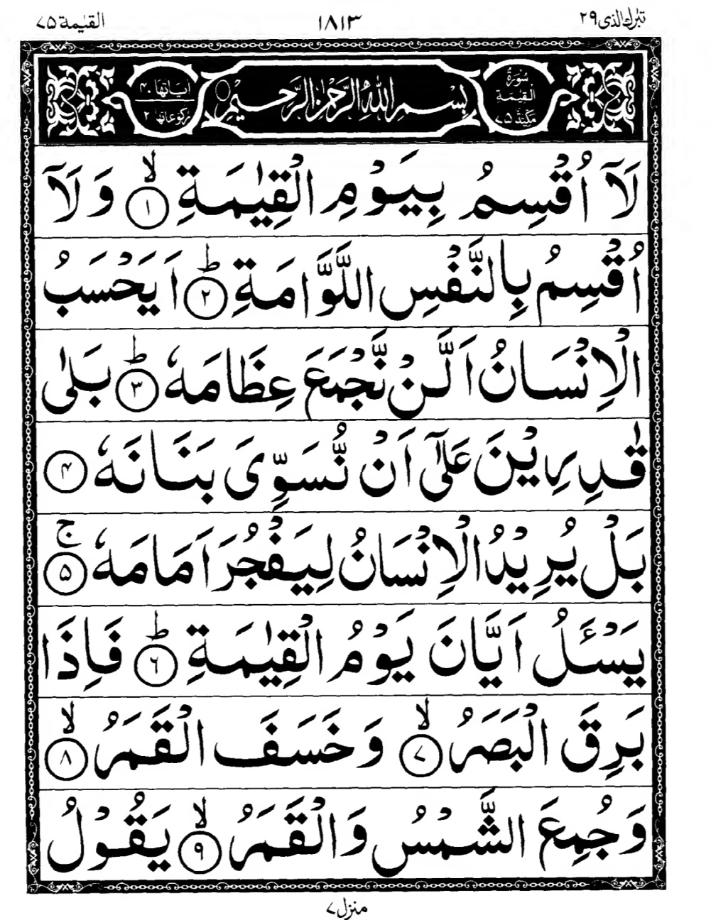 تبٰرك الذی ٢٩ ١٨١٣ القیٰمة ٧٥
سُوْرَةُ الْقِیٰمَةِ مَكِّیَّةٌ ٧٥ بِسْمِ اللّٰهِ الرَّحْمٰنِ الرَّحِیْمِ اٰیَاتُهَا ٤٠ رُكُوْعَاتُهَا ٢
لَاۤ اُقْسِمُ بِیَوْمِ الْقِیٰمَةِۙ ﴿١﴾ وَ لَاۤ
اُقْسِمُ بِالنَّفْسِ اللَّوَّامَةِؕ ﴿٢﴾ اَیَحْسَبُ
الْاِنْسَانُ اَلَّنْ نَّجْمَعَ عِظَامَهٗؕ ﴿٣﴾ بَلٰى
قٰدِرِیْنَ عَلٰۤى اَنْ نُّسَوِّیَ بَنَانَهٗ ﴿٤﴾
بَلْ یُرِیْدُ الْاِنْسَانُ لِیَفْجُرَ اَمَامَهٗۚ ﴿٥﴾
یَسْـَٔلُ اَیَّانَ یَوْمُ الْقِیٰمَةِؕ ﴿٦﴾ فَاِذَا
بَرِقَ الْبَصَرُۙ ﴿٧﴾ وَ خَسَفَ الْقَمَرُۙ ﴿٨﴾
وَ جُمِعَ الشَّمْسُ وَ الْقَمَرُۙ ﴿٩﴾ یَقُوْلُ
منزل ٧